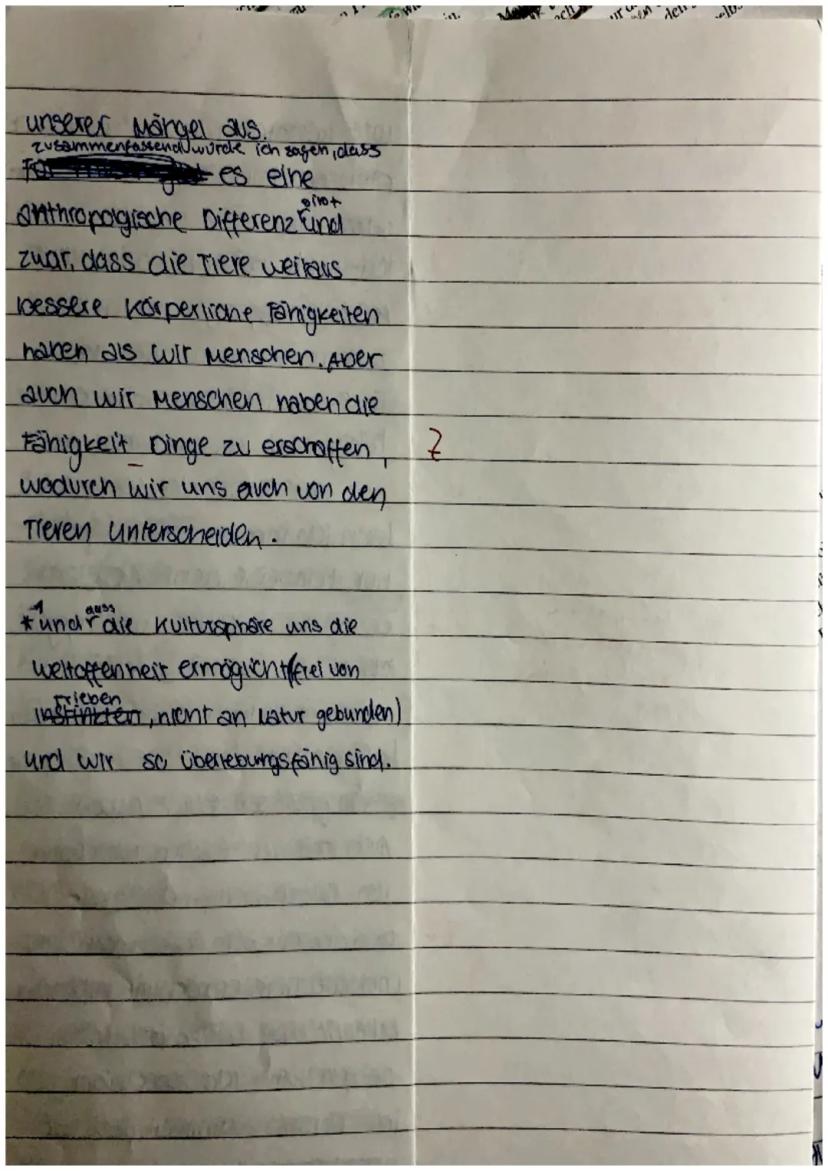 unserer Mängel aus.
zusammenfassend würde ich sagen, dass
es eine
anthropolgische Differenz gibt und
zwar, dass die Tiere weitaus
bessere körperliche Fähigkeiten
haben als wir Menschen. Aber
auch wir Menschen haben die
Fähigkeit Dinge zu erschaffen,
Z
wodurch wir uns auch von den
Tieren unterscheiden.
*1 und dass die Kultursphäre uns die
Weltoffenheit ermöglicht (frei von
Trieben
Instinkten, nicht an Natur gebunden)
und wir so überlebungsfähig sind.